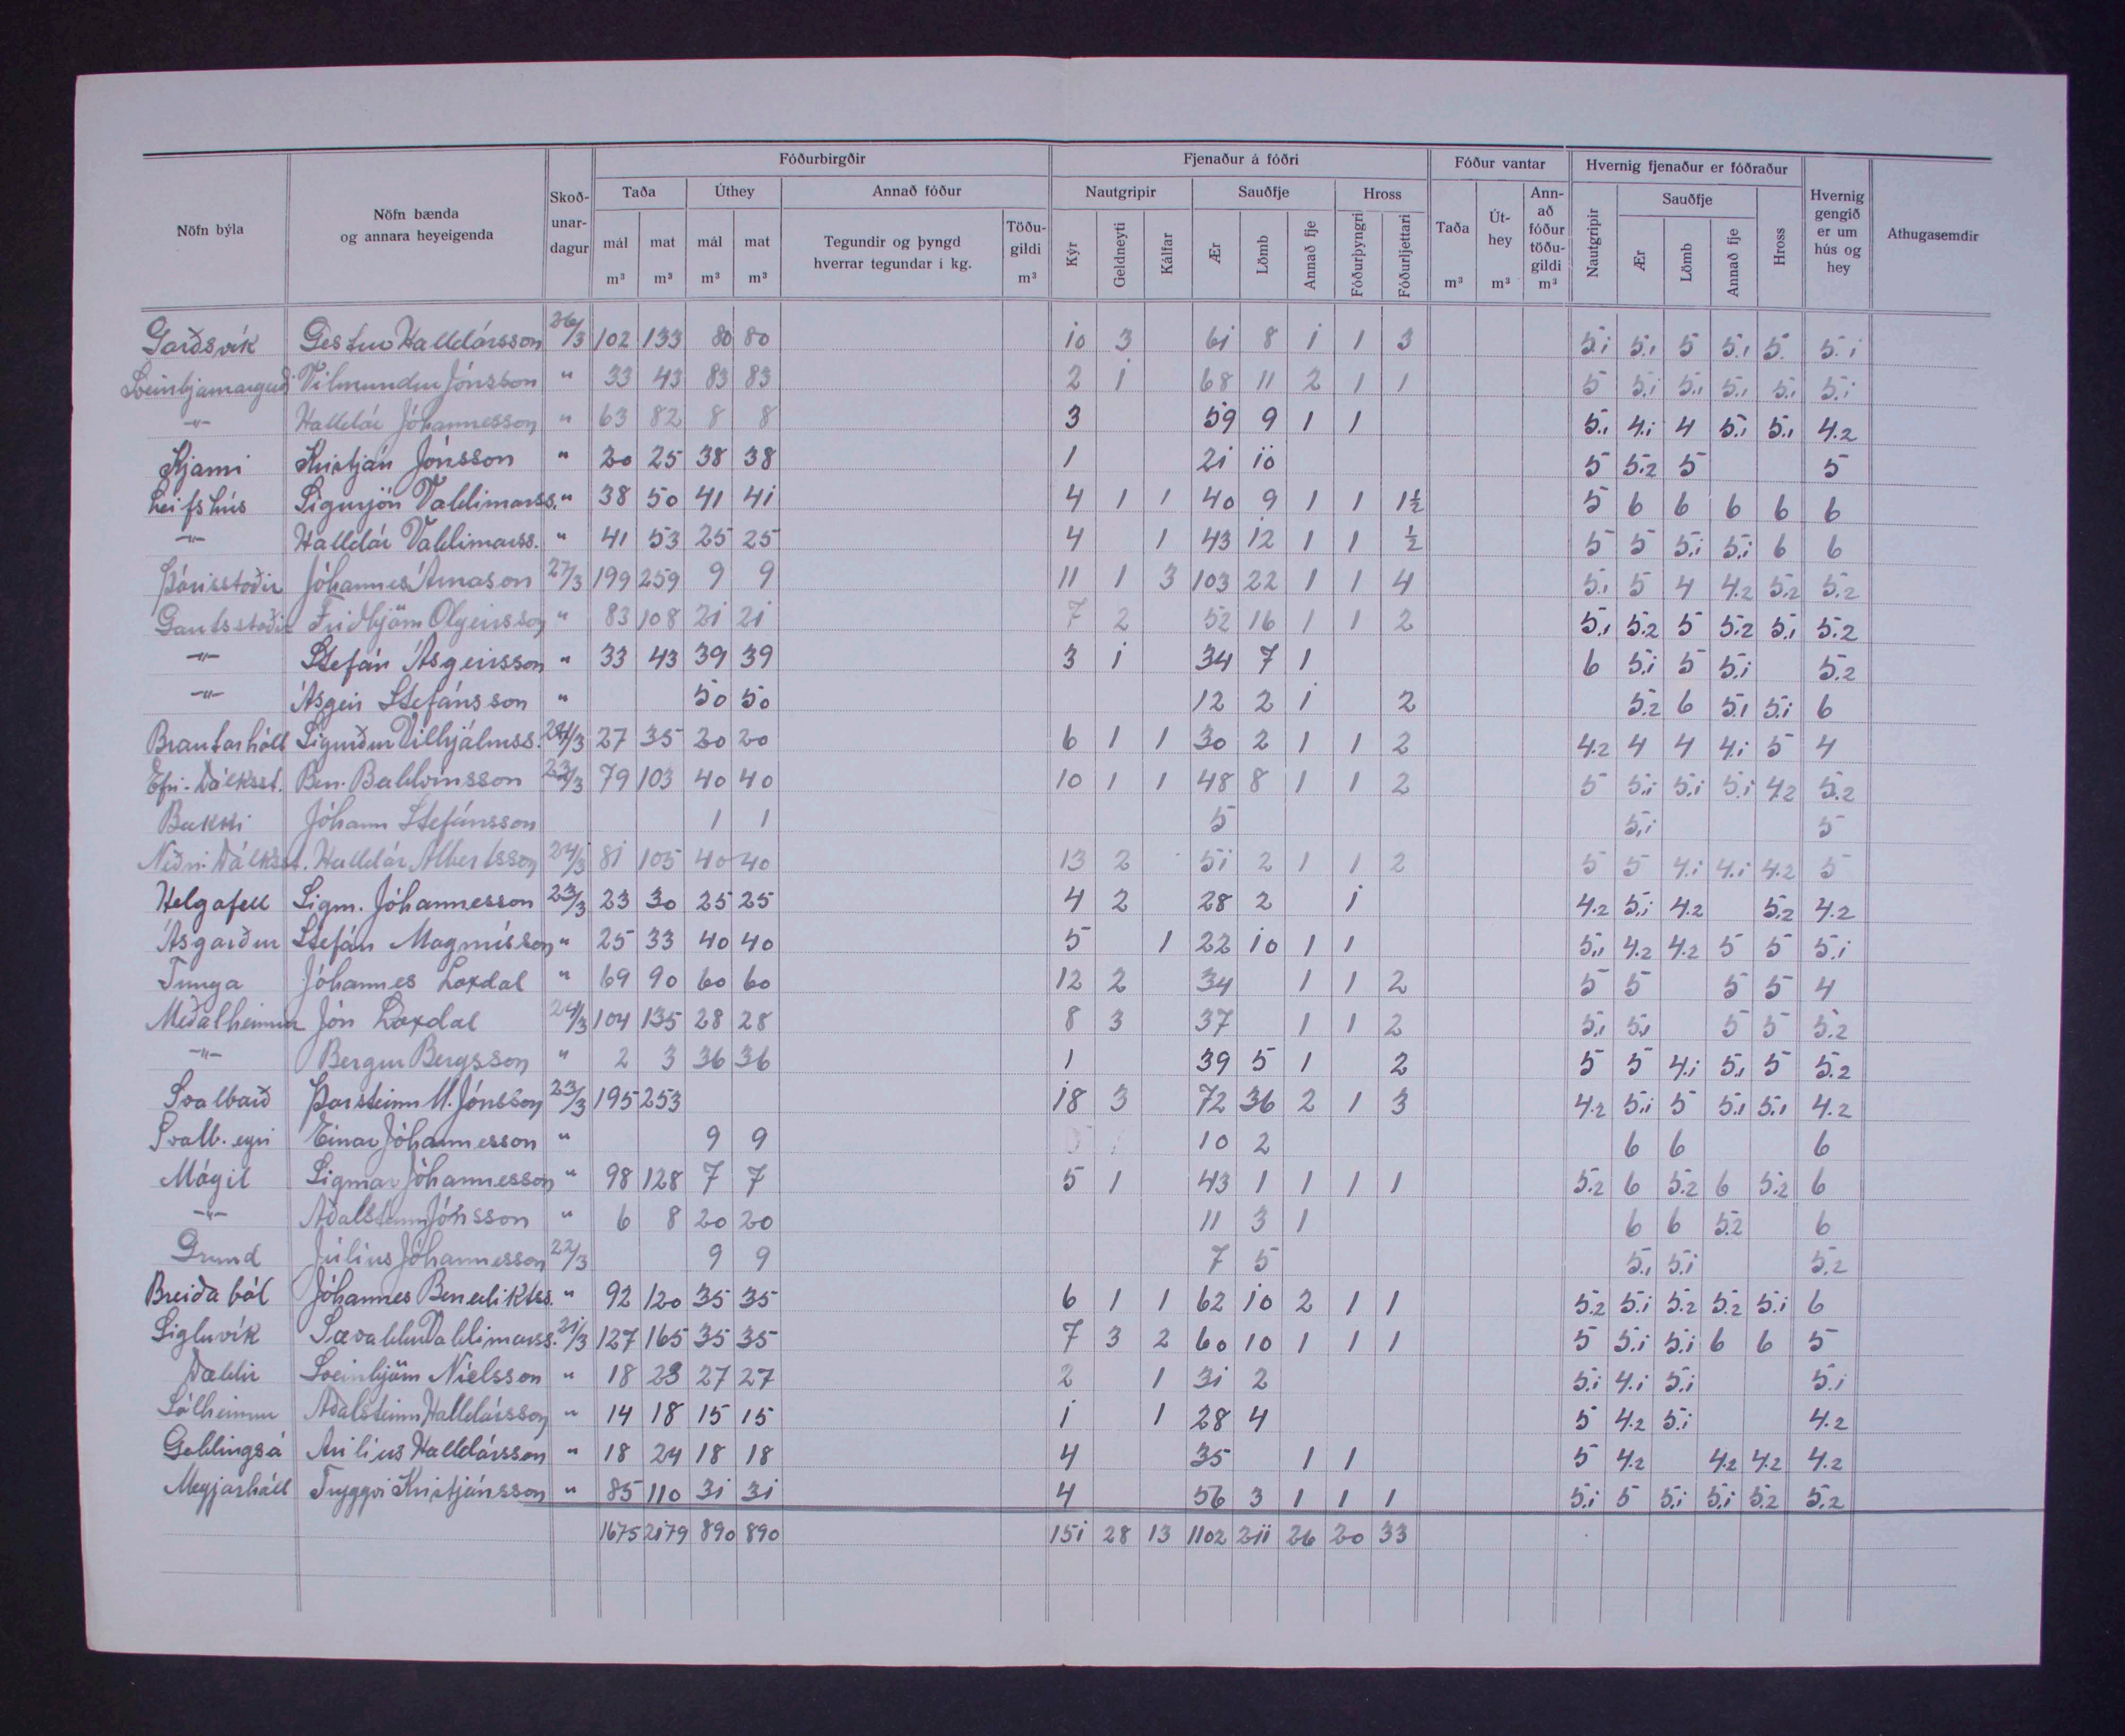 Fóðurbirgðir Fjenaður á fóðri Fóður vantar Hvernig fjenaður er fóðraður
Nöfn býla Nöfn bænda og annara heyeigenda Skoð-unar-dagur Taða Úthey Annað fóður Nautgripir Sauðfje Hross Taða m³ Út-hey m³ Ann-að fóður töðu-gildi m³ Nautgripir Sauðfje Hross Hvernig gengið er um hús og hey Athugasemdir
mál m³ mat m³ mál m³ mat m³ Tegundir og þyngd hverrar tegundar í kg. Töðu-gildi m³ Kýr Geldneyti Kálfar Ær Lömb Annað fje Fóðurþyngri Fóðurljettari Ær Lömb Annað fje
Garðsvík Gestur Halldórsson 26/3 102 133 80 80 10 3 61 8 1 1 3 5.1 5.1 5 5.1 5. 5.1
Sveinbjarnargerði Vilmundur Jónsson " 33 43 83 83 2 1 68 11 2 1 1 5 5.1 5.1 5.1 5.1 5.1
-"- Halldór Jóhannesson " 63 82 8 8 3 59 9 1 1 5.1 4.1 4 5.1 5.1 4.2
Kjarni Kristján Jónsson " 20 25 38 38 1 21 10 5 5.2 5 5
Leifshús Sigurjón Valdimarss. " 38 50 41 41 4 1 1 40 9 1 1 1½ 5 6 6 6 6 6
-"- Halldór Valdimarss. " 41 53 25 25 4 1 43 12 1 1 ½ 5 5 5.1 5.1 6 6
Þórisstaðir Jóhannes Árnason 27/3 199 259 9 9 11 1 3 103 22 1 1 4 5.1 5 4 4.2 5.2 5.2
Gautsstaðir Friðbjörn Olgeirsson " 83 108 21 21 7 2 52 16 1 1 2 5.1 5.2 5 5.2 5.1 5.2
-"- Stefán Ásgeirsson " 33 43 39 39 3 1 34 7 1 6 5.1 5 5.1 5.2
-"- Ásgeir Stefánsson " 50 50 12 2 1 2 5.2 6 5.1 5.1 6
Brautarhóll Sigurður Vilhjálmss. 24/3 27 35 20 20 6 1 1 30 2 1 1 2 4.2 4 4 4.1 5 4
Efri-Dálksst. Ben. Baldvinsson 23/3 79 103 40 40 10 1 1 48 8 1 1 2 5 5.1 5.1 5.1 4.2 5.2
Bakki Jóhann Stefánsson 1 1 5 5.1 5
Neðri-Dálksst. Halldór Albertsson 24/3 81 105 40 40 13 2 51 2 1 1 2 5 5 4.1 4.1 4.2 5
Helgafell Sigm. Jóhannesson 23/3 23 30 25 25 4 2 28 2 1 4.2 5.1 4.2 5.2 4.2
Ásgarður Stefán Magnússon " 25 33 40 40 5 1 22 10 1 1 5.1 4.2 4.2 5 5 5.1
Tunga Jóhannes Laxdal " 69 90 60 60 12 2 34 1 1 2 5 5 5 5 4
Meðalheimur Jón Laxdal 24/3 104 135 28 28 8 3 37 1 1 2 5.1 5.1 5 5 5.2
-"- Bergur Bergsson " 2 3 36 36 1 39 5 1 2 5 5 4.1 5.1 5 5.2
Svalbarð Þorsteinn M. Jónsson 23/3 195 253 18 3 72 36 2 1 3 4.2 5.1 5 5.1 5.1 4.2
Svalb.eyri Einar Jóhannesson " 9 9 10 2 6 6 6
Mógil Sigmar Jóhannesson " 98 128 7 7 5 1 43 1 1 1 1 5.2 6 5.2 6 5.2 6
-"- Aðalsteinn Jónsson " 6 8 20 20 11 3 1 6 6 5.2 6
Grund Júlíus Jóhannesson 22/3 9 9 7 5 5.1 5.1 5.2
Breiðaból Jóhannes Benediktss. " 92 120 35 35 6 1 1 62 10 2 1 1 5.2 5.1 5.2 5.2 5.1 6
Sigluvík Sævaldur Valdimarss. 21/3 127 165 35 35 7 3 2 60 10 1 1 1 5 5.1 5.1 6 6 5
Dældir Sveinbjörn Níelsson " 18 23 27 27 2 1 31 2 5.1 4.1 5.1 5.1
Sólheimar Aðalsteinn Halldórsson " 14 18 15 15 1 1 28 4 5 4.2 5.1 4.2
Geldingsá Arilíus Halldórsson " 18 24 18 18 4 35 1 1 5 4.2 4.2 4.2 4.2
Meyjarhóll Tryggvi Kristjánsson " 85 110 31 31 4 56 3 1 1 1 5.1 5 5.1 5.1 5.2 5.2
1675 2179 890 890 151 28 13 1102 211 26 20 33